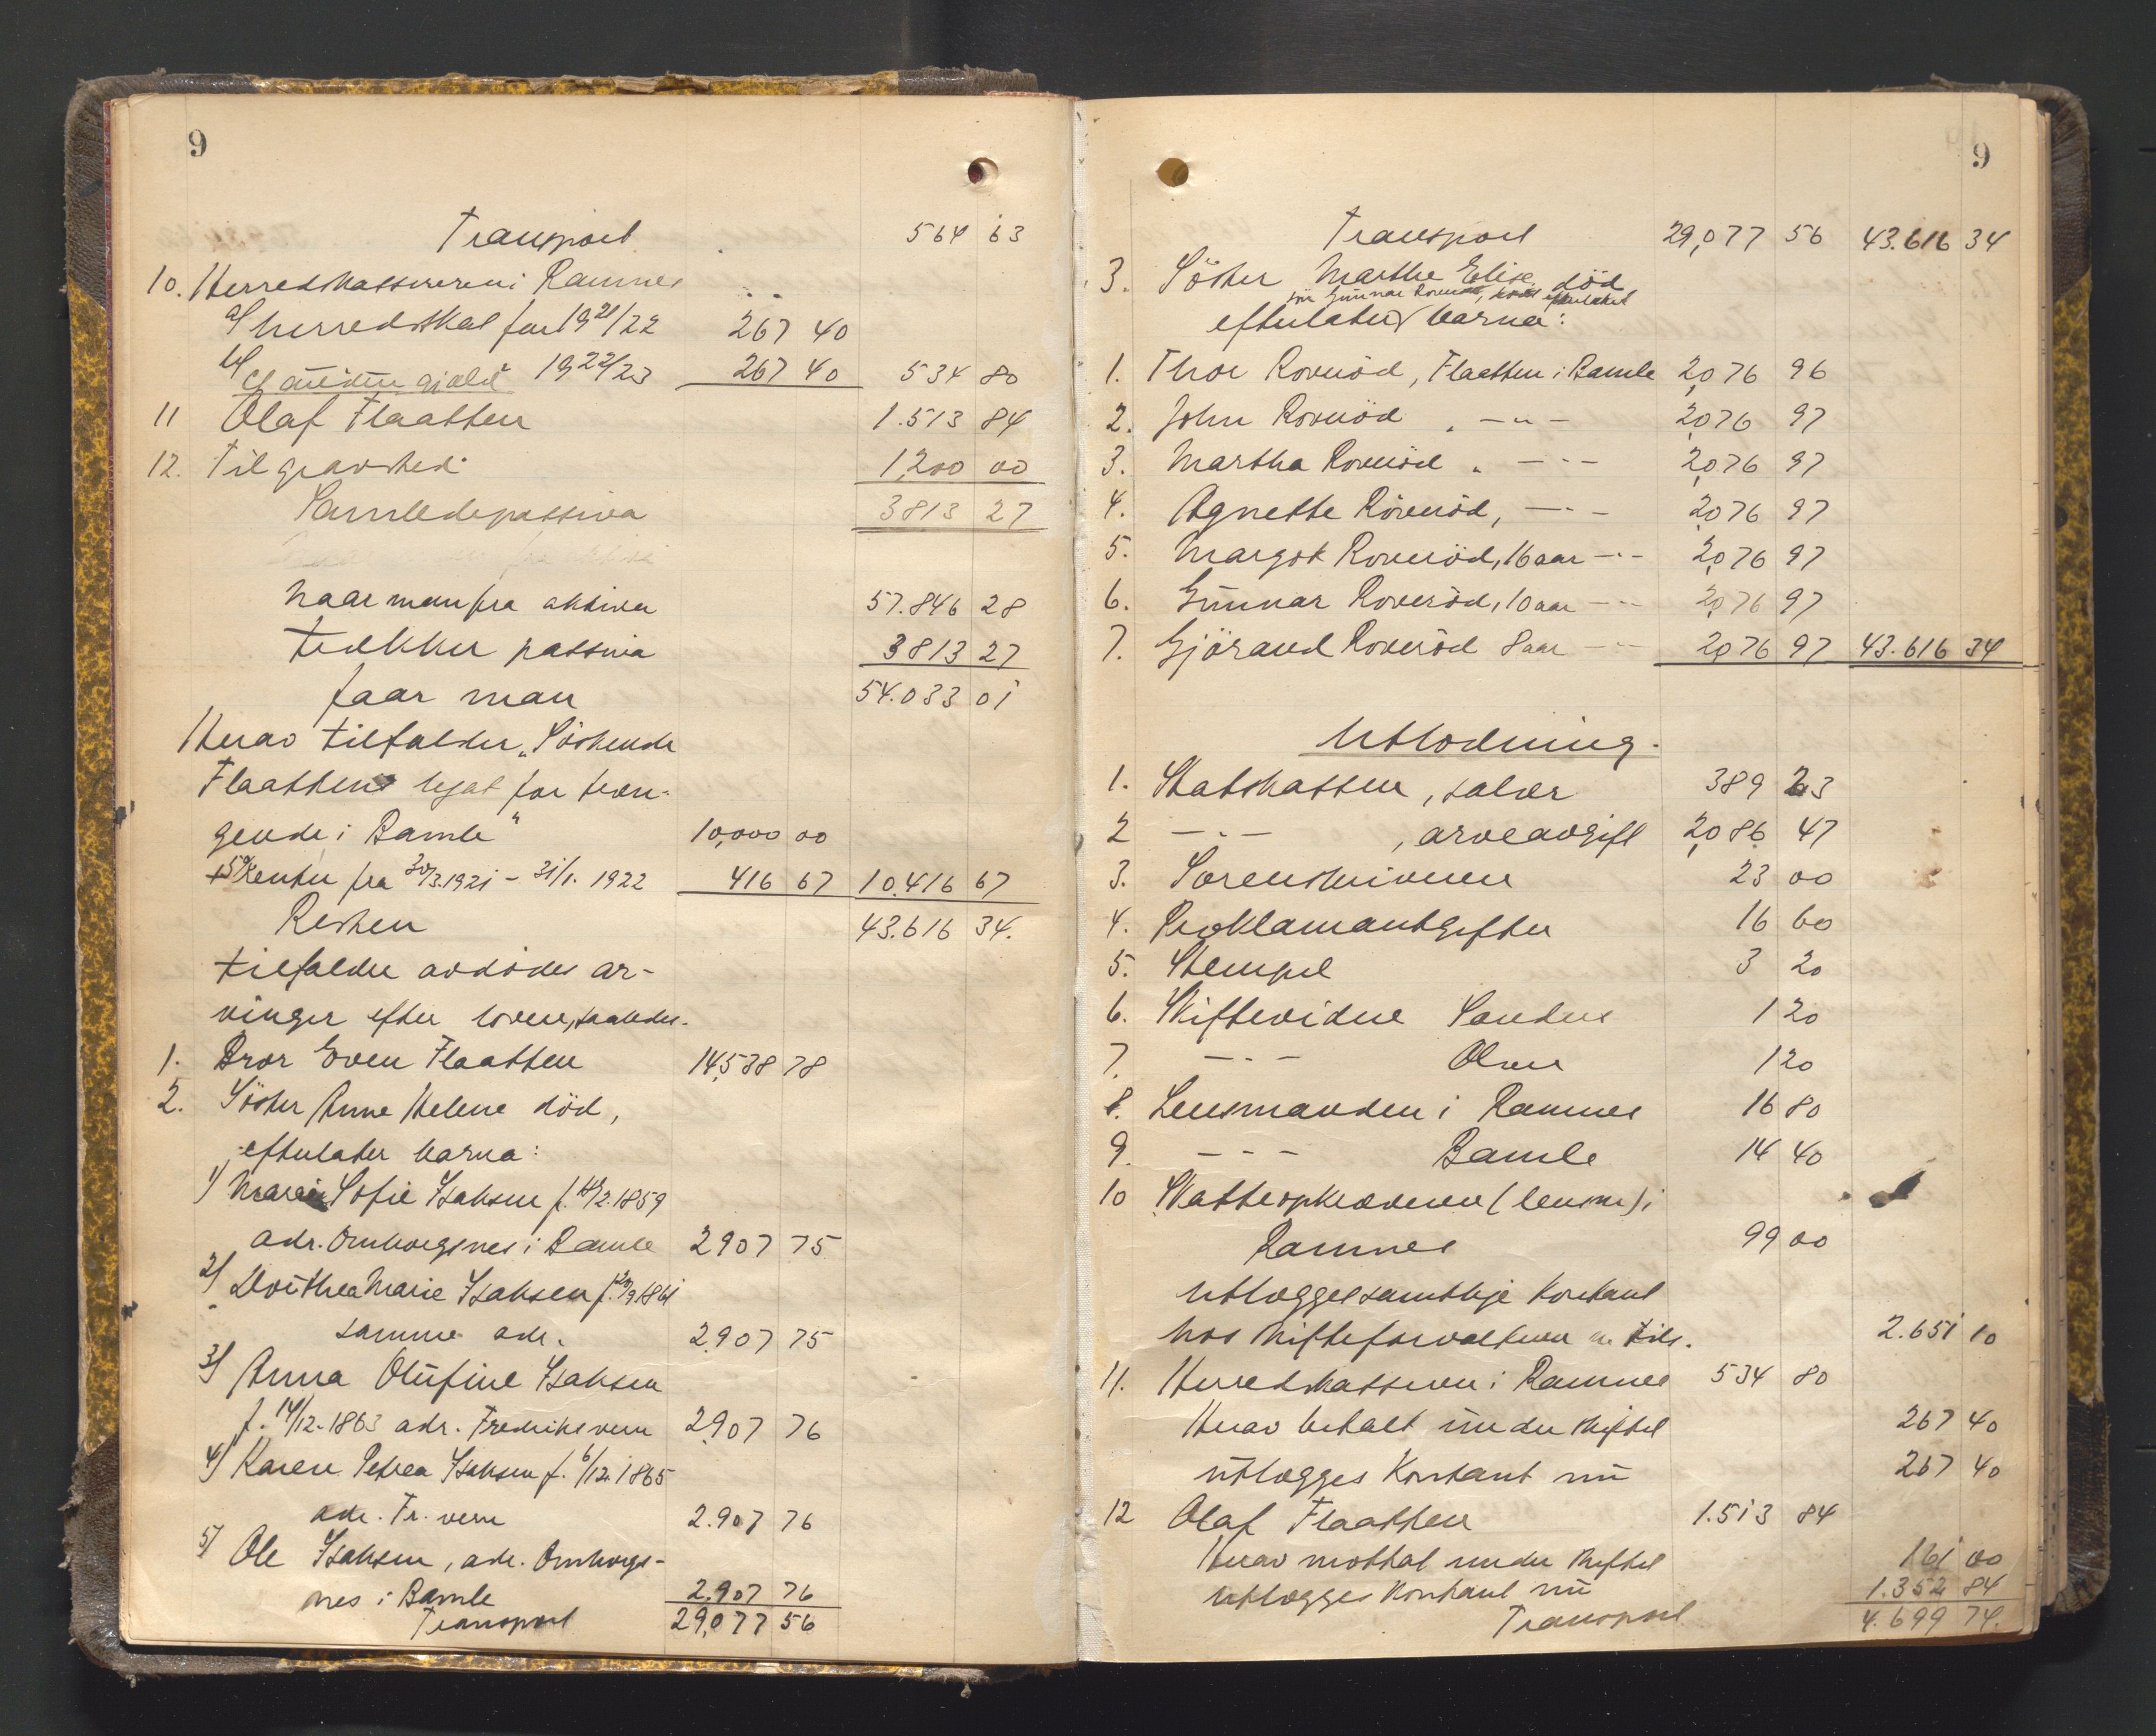 9
Transport 564 63
10. Herredskassereren i Ramnes
a/ herredskat for 19 21/22 267 40
b/ 19 22/23 267 40 534 80
anden gjæld
11 Olaf Flaatten 1.513 84
12. Til gravsted 1,200 00
Samlede passiva 3813 27
Naar man fra aktiva 57.846 28
trækker passiva 3813 27
faar man 54.033 01
Herav tilfalder „Söskende
Flaattens legat for træn-
gende i Bamle" 10,000 00
+ 5% renter fra 30/3.1921 - 31/1. 1922 416 67 10.416 67
Resten 43.616 34.
tilfalder avdödes ar-
vinger efter loven, saaledes.
1. Bror Even Flaatten 14,538 78
2. Söster Anne Helene död,
efterlater barna:
1) Maren Sofie Isaksen f. /2.1859
adr. Omborgsnes i Bamle 2907 75
2) Dorthea Marie Isaksen f. /9 1861
samme adr. 2,907 75
3) Anna Olufine Isaksen
f. 14/12.1863 adr. Fredriksvern 2,907 76
4) Karen Petrea Isaksen f. 6/12.1865
adr. Fr. vern 2.907 76
5) Ole Isaksen, adr. Omborgs-
nes i Bamle 2.907 76
Transport 29,077 56
9
Transport 29,077 56 43.616 34
3. Söster Marthe Elise död
efterlater barna:
1. Thor Roveröd, Flaatten i Bamle 2,076 96
2. John Roveröd, -"- 2,076 97
3. Martha Roveröd, -"- 2,076 97
4. Agnethe Roveröd, -"- 2,076 97
5. Margot Roveröd, 16 aar -"- 2,076 97
6. Gunnar Roveröd, 10 aar -"- 2,076 97
7. Gjörand Roveröd 8 aar -"- 2,076 97 43.616 34
Utlodning.
1. Statskassen, salær 389 23
2 -"- , arveavgift 2,086 47
3. Sorenskriveren 23 00
4. Proklamautgifter 16 60
5. Stempel 3 20
6. Skiftevidne Sandnes 1 20
7. -"- Olsen 1 20
8. Lensmanden i Ramnes 16 80
9. -"- Bamle 14 40
10 Skatteopkræveren (lensm) i
Ramnes 99 00
utlægges samtlige kontant
hos skifteforvalteren m. tils. 2.651 10
11. Herredskasseren i Ramnes 534 80
Herav betalt under skiftet 267 40
utlægges kontant nu 267 40
12 Olaf Flaatten 1.513 84
Herav mottat under skiftet 161 00
utlægges kontant nu 1.352 84
Transport 4.699 74.